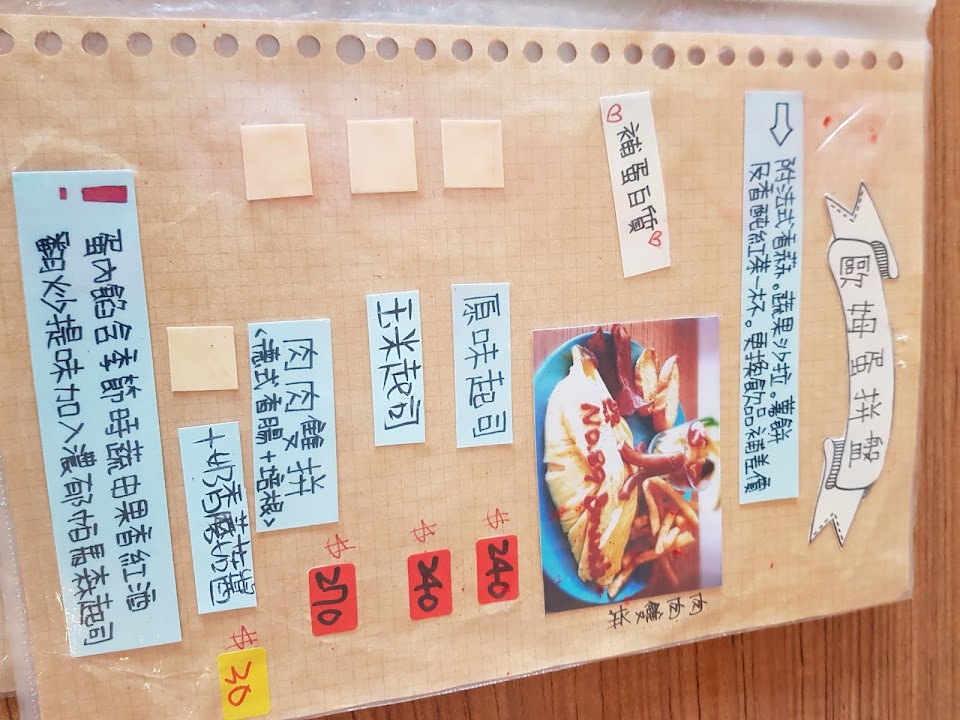 歐姆蛋拌盤
附法式香蒜。蔬果沙拉。薯餅
及香醇紅茶一杯。更換飲品補差價
補蛋白質
肉肉雙拼
原味起司 $240
玉米起司 $240
肉肉雙拼 $270
<德式香腸+培根>
+奶香蘑菇醬 $30
蛋內餡含季節時蔬由果香紅酒
翻炒提味加入濃郁帕瑪森起司